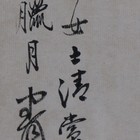 女士清賞
臘月